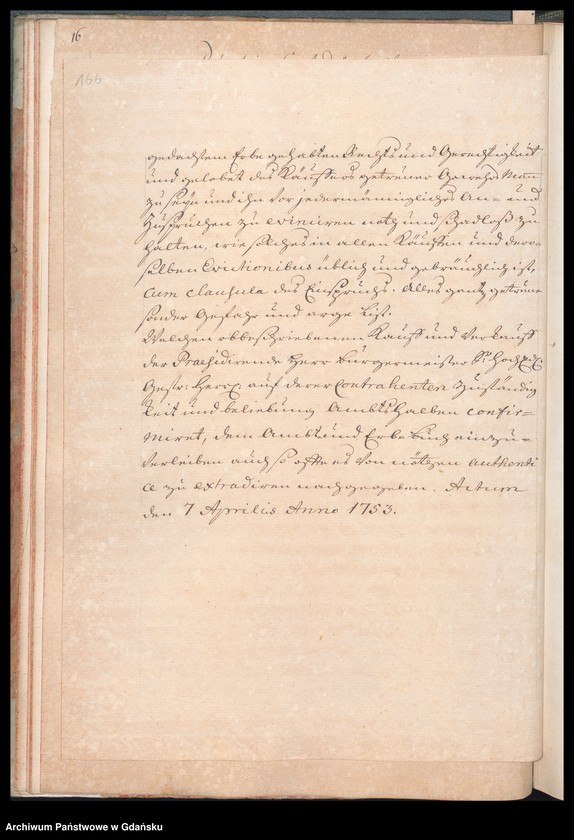 16
166
gedachtem Erbe gehabten Rechts und Gerechtigkeit
und gelobet des Käuffers getreuer Gewehrs Mann
zu seyn und ihn vor jedermännigliches An- und
Zusprüchen zu evinciren noth und schadloß zu
halten, wie solches in allen Käuffen und der-
selben Evictionibus üblich und gebräuchlich ist,
cum clausula des Einspruchs. Alles gantz getreue
sonder Gefahr und arge List.
Welchen obbeschriebenen Kauff und Verkauff
der Praesidirende Herr Bürgermeister
Herrl. auf derer Contrahenten Zuständig
keit und beliebung Ambts halben confir-
miret, dem Ambt und Erbe Buch einzu-
verleiben auch so offt es von nöthen authenti
ce zu extradiren nachgegeben. Actum
den 7 Aprilis Anno 1753.
Archiwum Państwowe w Gdańsku